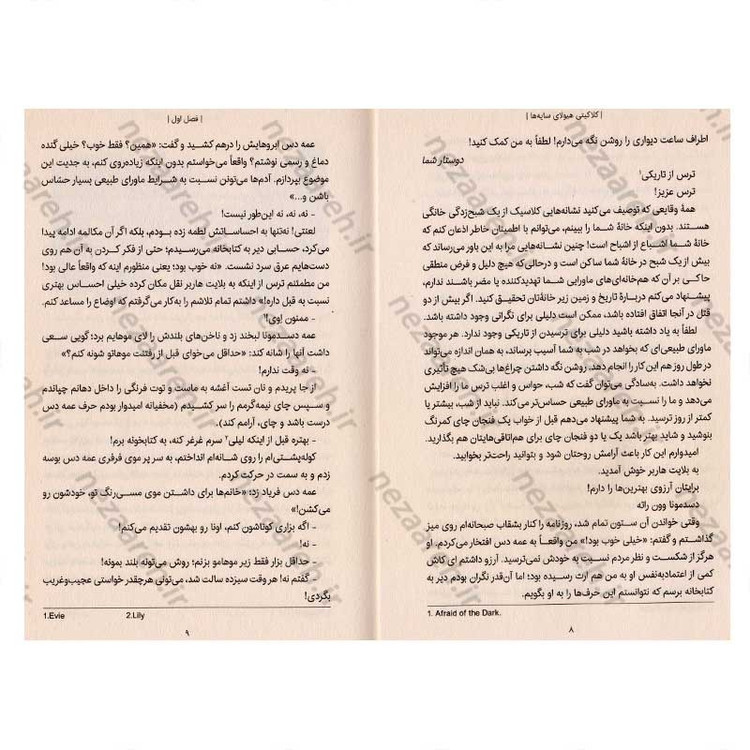 | کلاکینی هیولای سایه‌ها |
اطراف ساعت دیواری را روشن نگه می‌دارم! لطفاً به من کمک کنید!
دوستار شما
ترس از تاریکی¹
ترس عزیز!
همهٔ وقایعی که توصیف می‌کنید نشانه‌هایی کلاسیک از یک شبح‌زدگی خانگی
هستند. بدون اینکه خانهٔ شما را ببینم، می‌توانم با اطمینان خاطر اذعان کنم که
خانهٔ شما اشباع از اشباح است! چنین نشانه‌هایی مرا به این باور می‌رساند که
بیش از یک شبح در خانهٔ شما ساکن است و درحالی‌که هیچ دلیل و فرض منطقی
حاکی بر آن که هم‌خانه‌ای‌های ماورایی شما تهدیدکننده یا مضر باشند ندارم،
پیشنهاد می‌کنم دربارهٔ تاریخ و زمین زیر خانه‌تان تحقیق کنید. اگر بیش از دو
قتل در آنجا اتفاق افتاده باشد، ممکن است دلیلی برای نگرانی وجود داشته باشد.
لطفاً به یاد داشته باشید دلیلی برای ترسیدن از تاریکی وجود ندارد. هر موجود
ماورای طبیعی‌ای که بخواهد در شب به شما آسیب برساند، به همان اندازه می‌تواند
در طول روز هم این کار را انجام دهد. روشن نگه داشتن چراغ‌ها بی‌شک هیچ تأثیری
نخواهد داشت. به‌سادگی می‌توان گفت که شب، حواس و اغلب ترس ما را افزایش
می‌دهد و ما را نسبت به ماورای طبیعی حساس‌تر می‌کند. نباید از شب، بیشتر یا
کمتر از روز ترسید. به شما پیشنهاد می‌دهم قبل از خواب یک فنجان چای کمرنگ
بنوشید و شاید بهتر باشد یک یا دو فنجان چای برای هم‌اتاقی‌هایتان هم بگذارید.
امیدوارم این کار باعث آرامش روحتان شود و بتوانید راحت‌تر بخوابید.
به بلایت هاربر خوش آمدید.
برایتان آرزوی بهترین‌ها را دارم!
دسدمونا وون راته
وقتی خواندن آن ستون تمام شد، روزنامه را کنار بشقاب صبحانه‌ام روی میز
گذاشتم و گفتم: «خیلی خوب بود!» من واقعاً به عمه دس افتخار می‌کردم. او
هرگز از شکست و نظر مردم نسبت به خودش نمی‌ترسید. آرزو داشتم ای کاش
کمی از اعتمادبه‌نفس او به من هم ارث رسیده بود؛ اما آن‌قدر نگران بودم دیر به
کتابخانه برسم که نتوانستم این حرف‌ها را به او بگویم.
1. Afraid of the Dark.
۸
| فصل اول |
عمه دس ابروهایش را درهم کشید و گفت: «همین؟ فقط خوب؟ خیلی گنده
دماغ و رسمی نوشتم؟ واقعاً می‌خواستم بدون اینکه زیاده‌روی کنم، به جدیت این
موضوع بپردازم. آدم‌ها می‌تونن نسبت به شرایط ماورای طبیعی بسیار حساس
باشن و...»
- نه، نه، نه این‌طور نیست!
لعنتی! نه‌تنها به احساساتش لطمه زده بودم، بلکه اگر آن مکالمه ادامه پیدا
می‌کرد، حسابی دیر به کتابخانه می‌رسیدم؛ حتی از فکر کردن به آن هم روی
دست‌هایم عرق سرد نشست. «نه خوب بود؛ یعنی منظورم اینه که واقعاً عالی بود!
من مطمئنم ترس از اینکه به بلایت هاربر نقل مکان کرده خیلی احساس بهتری
نسبت به قبل داره!» داشتم تمام تلاشم را به‌کار می‌گرفتم که اوضاع را مساعد کنم.
- ممنون اِوی!¹
عمه دسدمونا لبخند زد و ناخن‌های بلندش را لای موهایم برد؛ گویی سعی
داشت آنها را شانه کند: «حداقل می‌خوای قبل از رفتنت موهاتو شونه کنم؟»
- نه وقت ندارم!
از جا پریدم و نان تست آغشته به ماست و توت فرنگی را داخل دهانم چپاندم
و سپس چای نیمه‌گرمم را سر کشیدم (مخفیانه امیدوار بودم حرف عمه دس
درست باشد و چای، آرامم کند).
- بهتره قبل از اینکه لیلی² سرم غرغر کنه، به کتابخونه برم!
کوله‌پشتی‌ام را روی شانه‌ام انداختم، به سر پر موی فرفری عمه دس بوسه
زدم و به سمت در حرکت کردم.
عمه دس فریاد زد: «خانم‌ها برای داشتن موی مسی‌رنگ تو، خودشون رو
می‌کشن!»
- اگه بزاری کوتاشون کنم، اونا رو بهشون تقدیم می‌کنم!
- نه!
- حداقل بزار فقط زیر موهامو بزنم؛ روش می‌تونه بلند بمونه!
- گفتم نه! هر وقت سیزده سالت شد، می‌تونی هرچقدر خواستی عجیب‌وغریب
بگردی!
1.Evie 2.Lily
۹
nezaareh.ir